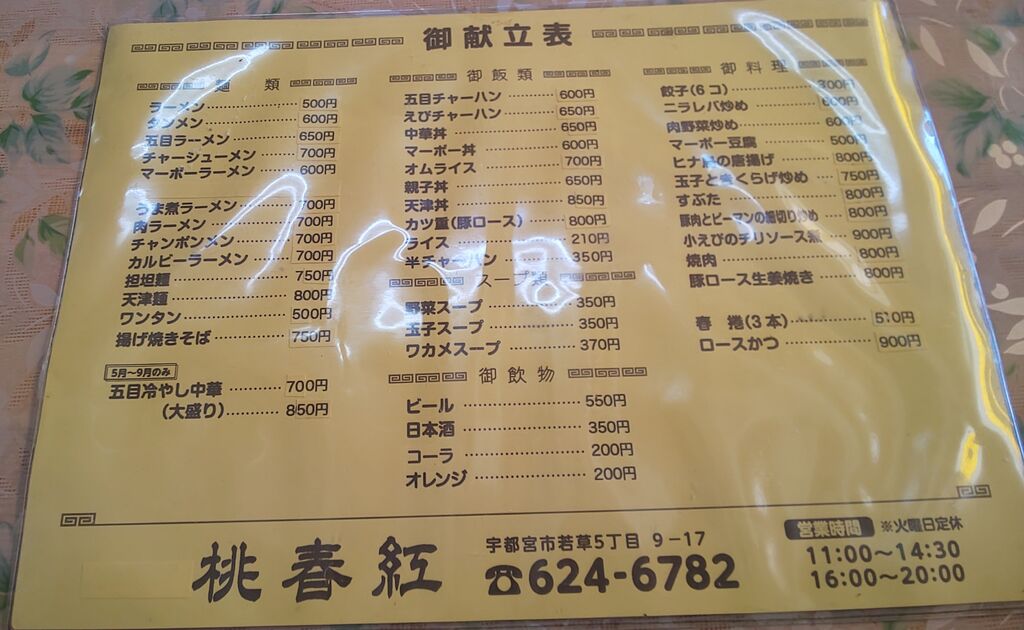 御献立表
麺 類
ラーメン 500円
タンメン 600円
五目ラーメン 650円
チャーシューメン 700円
マーボーラーメン 600円
うま煮ラーメン 700円
肉ラーメン 700円
チャンポンメン 700円
カルビーラーメン 700円
担坦麺 750円
天津麺 800円
ワンタン 500円
揚げ焼きそば 750円
5月〜9月のみ
五目冷やし中華 700円
(大盛り) 850円
御飯類
五目チャーハン 600円
えびチャーハン 650円
中華丼 650円
マーボー丼 600円
オムライス 700円
親子丼 650円
天津丼 850円
カツ重(豚ロース) 800円
ライス 210円
半チャーハン 350円
スープ類
野菜スープ 350円
玉子スープ 350円
ワカメスープ 370円
御飲物
ビール 550円
日本酒 350円
コーラ 200円
オレンジ 200円
御料理
餃子(6コ) 300円
ニラレバ炒め 600円
肉野菜炒め 600円
マーボー豆腐 500円
ヒナ鳥の唐揚げ 800円
玉子ときくらげ炒め 750円
すぶた 800円
豚肉とピーマンの細切り炒め 800円
小えびのチリソース煮 900円
焼肉 800円
豚ロース生姜焼き 800円
春 捲(3本) 円
ロースかつ 900円
桃春紅
宇都宮市若草5丁目 9-17
☎624-6782
営業時間 ※火曜日定休
11:00〜14:30
16:00〜20:00